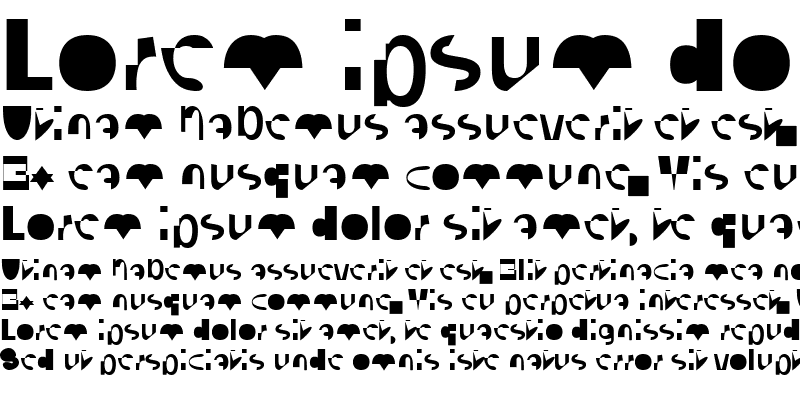 Lorem ipsum do
Utinam habemus assueverit et est.
Ex eam nusquam commune. Vis eu
Lorem ipsum dolor sit amet, te quae
Utinam habemus assueverit et est. Elit pertinacia mea no
Ex eam nusquam commune. Vis eu perpetua interesset.
Lorem ipsum dolor sit amet, te quaestio dignissim repud
Sed ut perspiciatis unde omnis iste natus error sit volupt